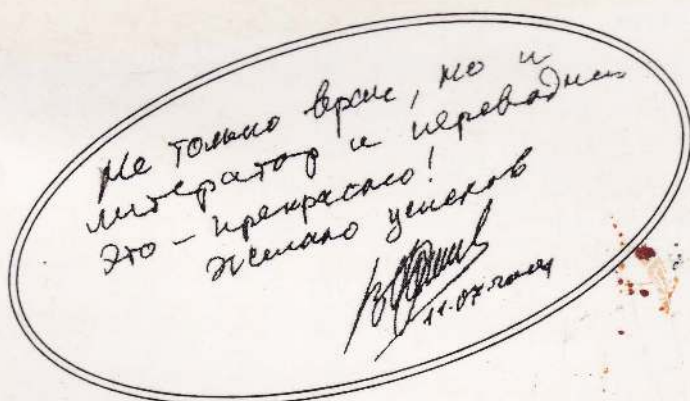 Не только врач, но и
литератор и переводчик
Это – прекрасно!
Желаю успехов
11.07.